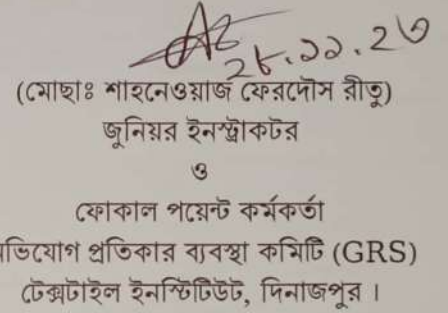 ২৮.১১.২৩
(মোছাঃ শাহনেওয়াজ ফেরদৌস রীতু)
জুনিয়র ইনস্ট্রাকটর
ও
ফোকাল পয়েন্ট কর্মকর্তা
ভিযোগ প্রতিকার ব্যবস্থা কমিটি (GRS)
টেক্সটাইল ইনস্টিটিউট, দিনাজপুর ।